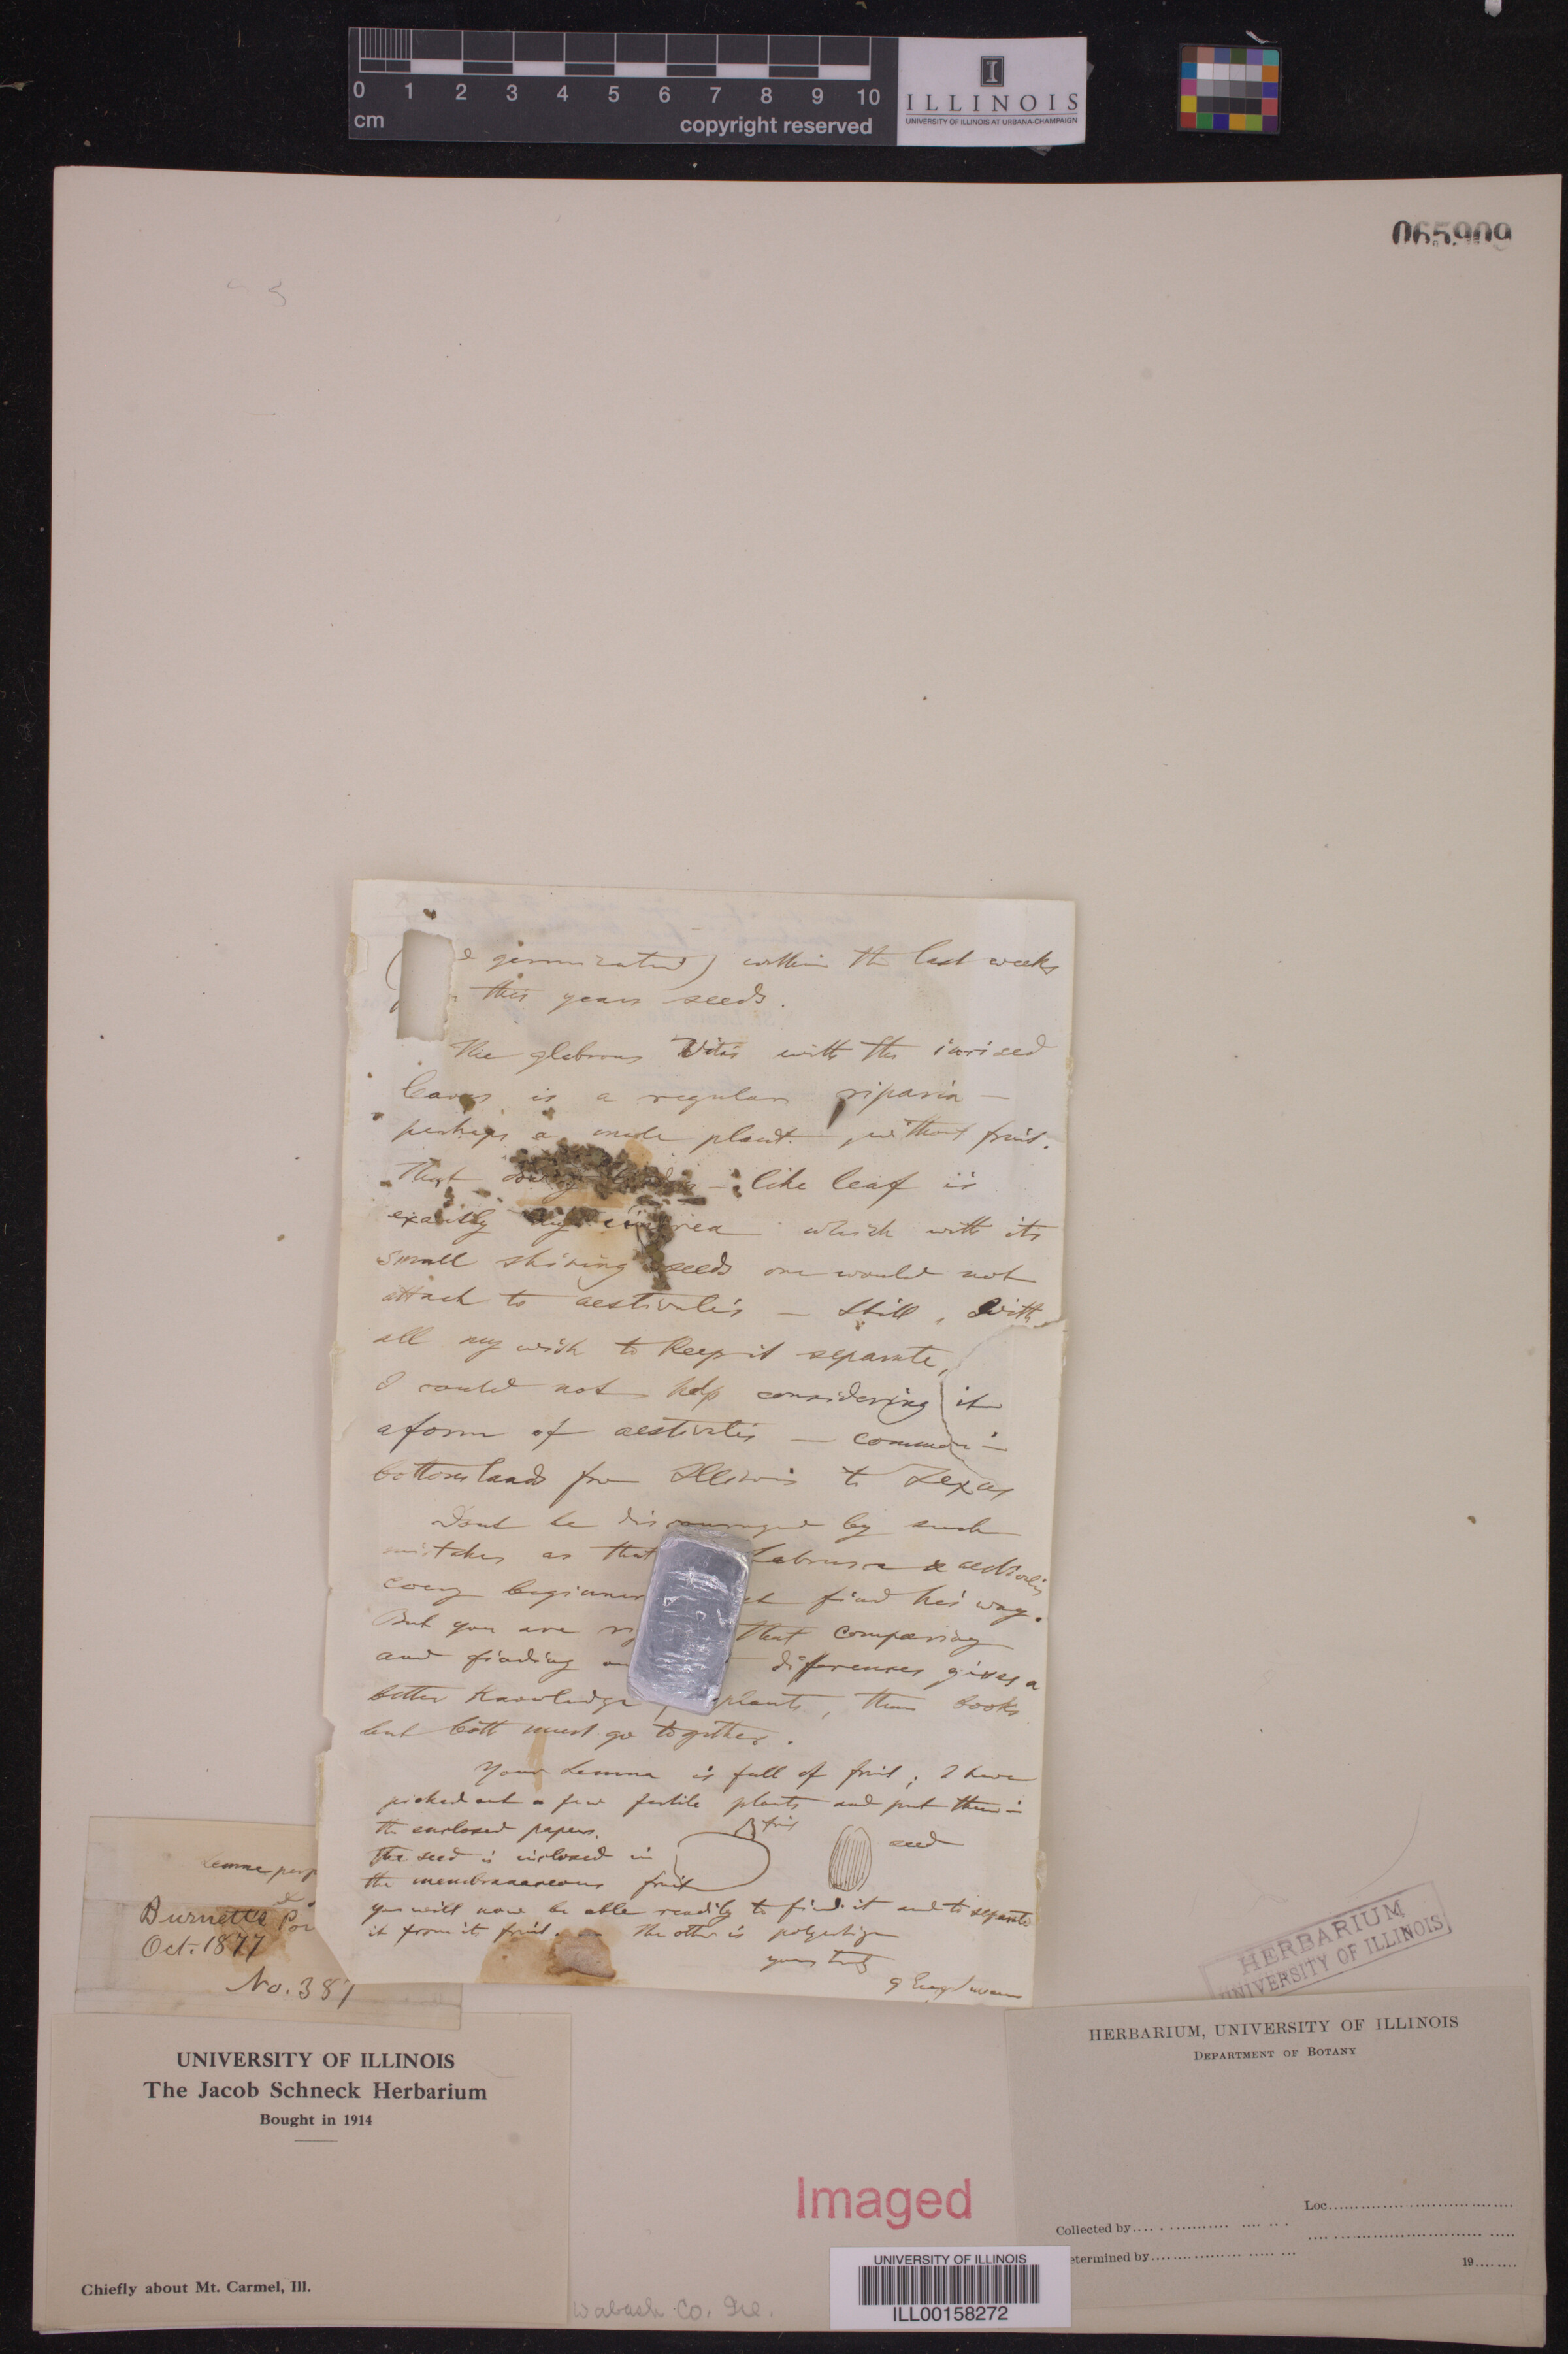 0 1 2 3 4 5 6 7 8 9 10
cm
copyright reserved
I
ILLINOIS
UNIVERSITY OF ILLINOIS AT URBANA-CHAMPAIGN
065909
germinated) within the last weeks
this years seeds.
The glabrous Vitis with the incised
leaves is a regular riparia —
perhaps a male plant, without fruit.
That - like leaf is
exactly my cinerea which with its
small shining seeds one would not
attach to aestivalis — Still, with
all my wish to keep it separate,
I could not help considering it
a form of aestivalis — common in
bottom lands from Illinois to Texas
Dont be discouraged by such
mistakes as that Labrusca & aestivalis
every beginner find his way.
But you are that comparing
and finding differences gives a
better knowledge plants, than books
but both must go together.
Your Lemna is full of fruit; I have
picked out a few fertile plants and put them in
the enclosed papers.
fruit
seed
The seed is inclosed in
the membranaceous fruit
you will now be able readily to find it and to separate
it from its fruit. — The other is polyrhiza
yours truly
G Engelmann
Lemna perp
Burnett's Pon
Oct. 1877
No. 381
HERBARIUM
UNIVERSITY OF ILLINOIS
UNIVERSITY OF ILLINOIS
The Jacob Schneck Herbarium
Bought in 1914
Chiefly about Mt. Carmel, Ill.
HERBARIUM, UNIVERSITY OF ILLINOIS
DEPARTMENT OF BOTANY
Loc.
Collected by
etermined by
19
Imaged
Wabash Co. Ill.
UNIVERSITY OF ILLINOIS
ILL00158272